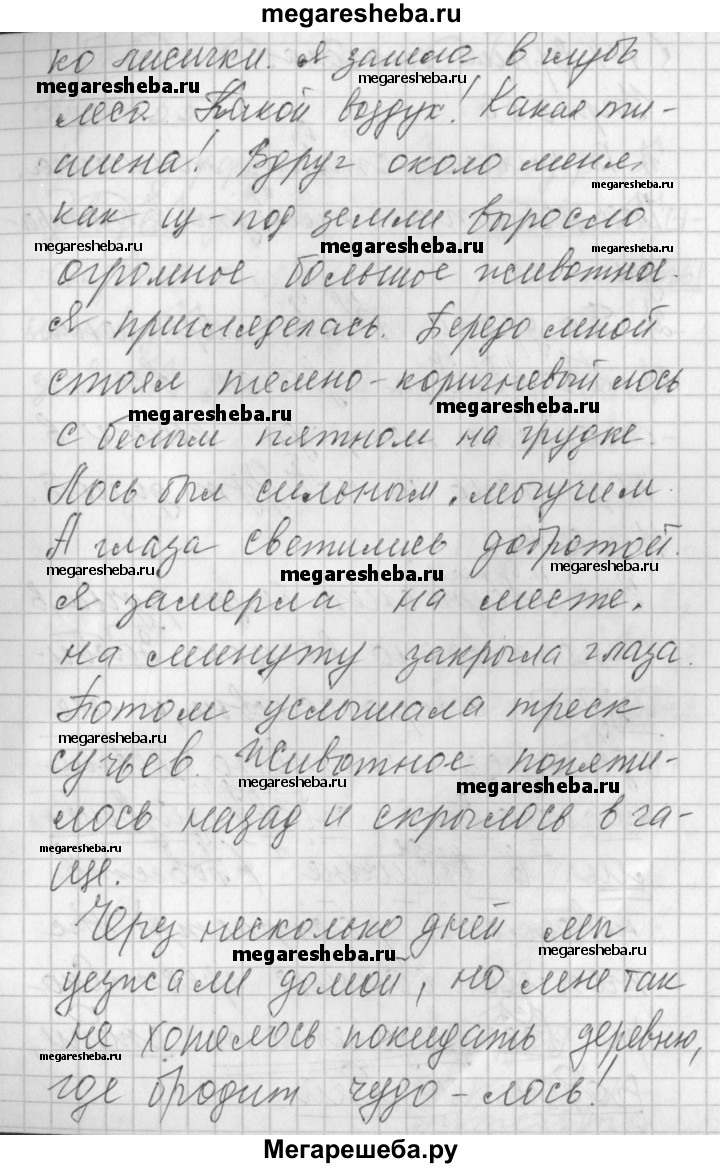 megaresheba.ru
ко лисички. Я зашла в глубь
megaresheba.ru megaresheba.ru
леса. Какой воздух! Какая ти-
шина! Вдруг около меня,
megaresheba.ru
как из-под земли выросло
megaresheba.ru megaresheba.ru megaresheba.ru
огромное большое животное.
Я пригляделась. Передо мной
стоял темно-коричневый лось
megaresheba.ru megaresheba.ru
с белым пятном на грудке.
Лось был сильным, могучим.
А глаза светились добротой.
megaresheba.ru megaresheba.ru megaresheba.ru
Я замерла на месте,
на минуту закрыла глаза.
Потом услышала треск
megaresheba.ru
сучьев. Животное попяти-
megaresheba.ru megaresheba.ru
лось назад и скрылось в ча-
megaresheba.ru
ще.
Через несколько дней мы
megaresheba.ru megaresheba.ru
уезжали домой, но мне так
не хотелось покидать деревню,
megaresheba.ru
где бродит чудо-лось!
Мегарешеба.ру